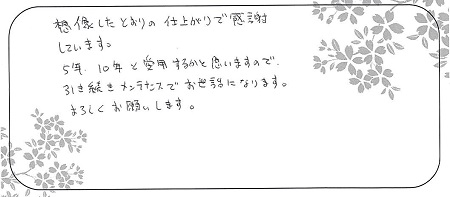 想像したとおりの仕上がりで感謝
しています。
5年、10年と愛用するかと思いますので、
引き続きメンテナンスでお世話になります。
よろしくお願いします。